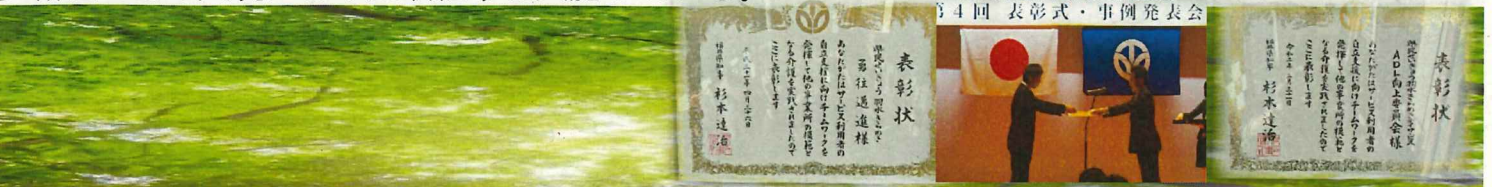 第4回 表彰式・事例発表会
表彰状
県民せいきょう 羽水きらめき
勇往邁進様
あなたがたはサービス利用者の
自立支援に向けチームワークを
発揮して他の事業所の模範と
なる介護を実践されましたので
ここに表彰します
平成三十一年四月二十六日
福井県知事 杉本達治
表彰状
ADL向上委員会様
あなたがたはサービス利用者の
自立支援に向けチームワークを
発揮して他の事業所の模範と
なる介護を実践されましたので
ここに表彰します
福井県知事 杉本達治